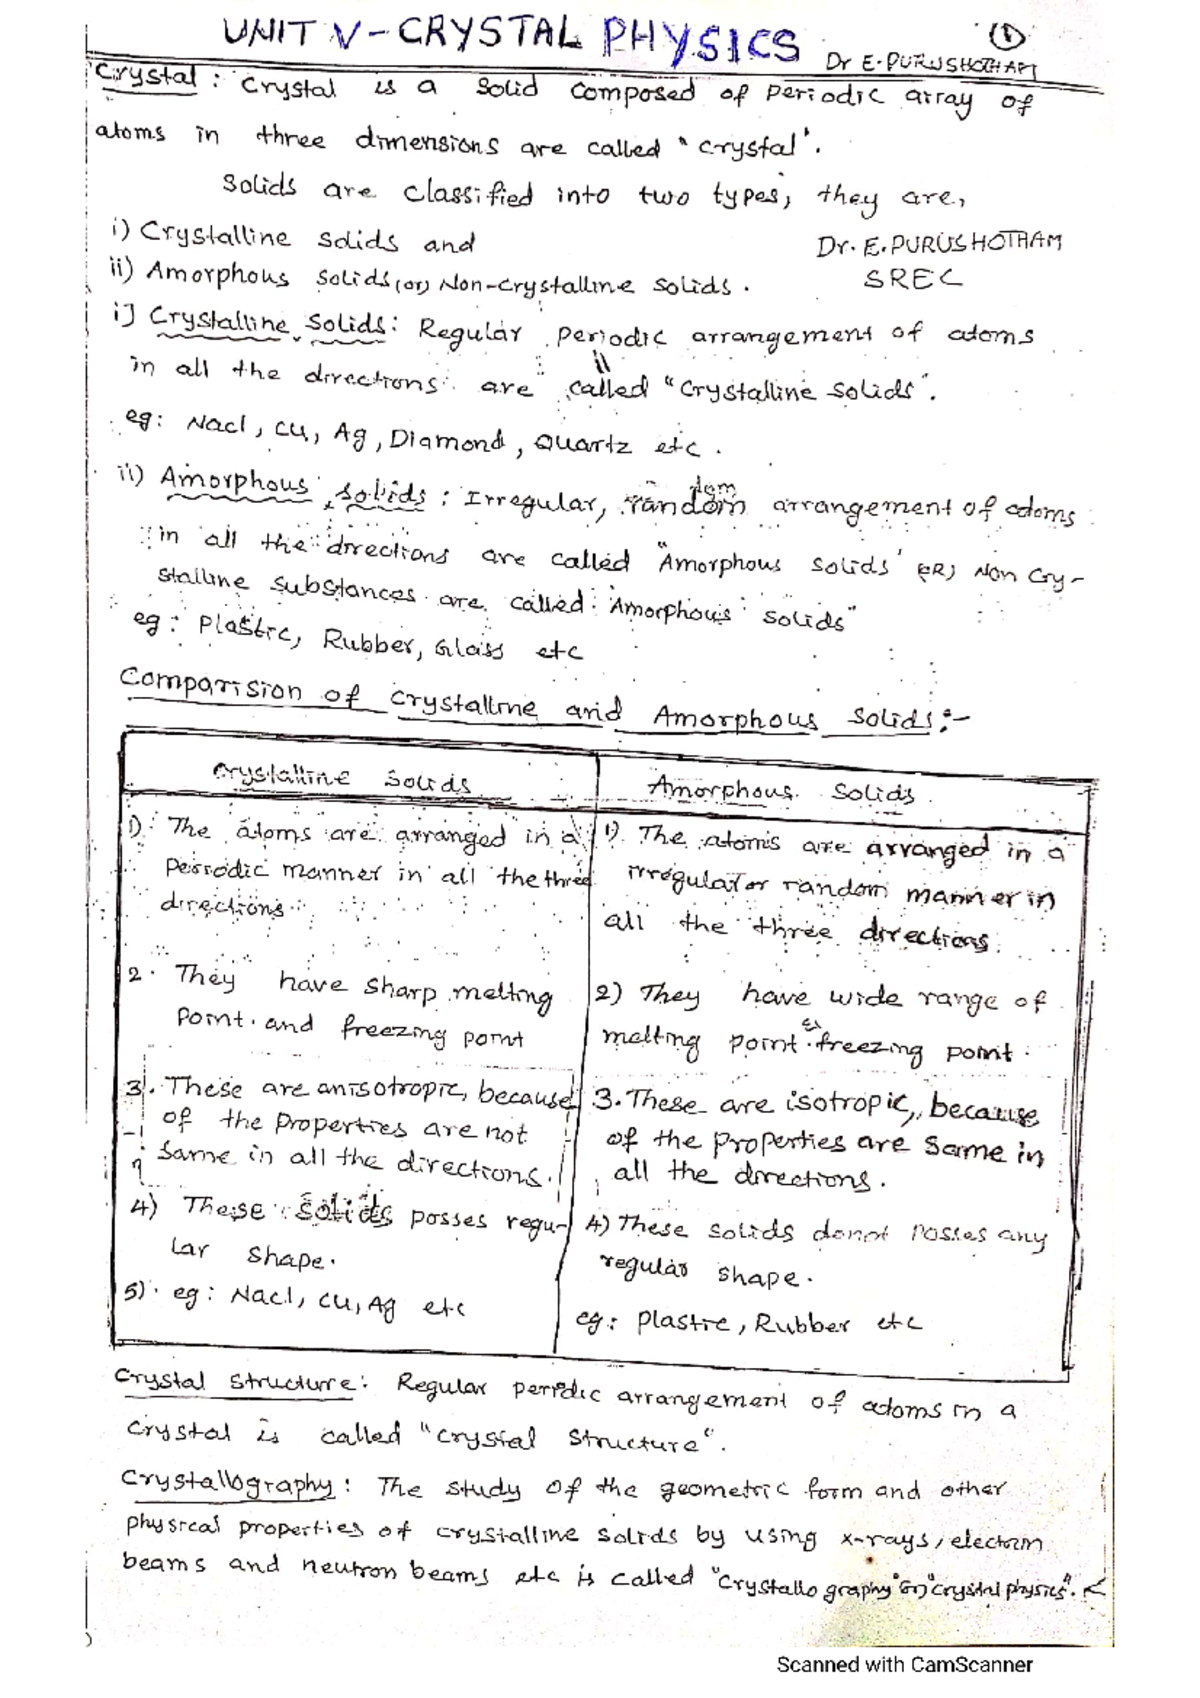 UNIT V - CRYSTAL PHYSICS
1
Dr E. PURUSHOTHAM
Crystal : Crystal is a solid composed of periodic array of
atoms in three dimensions are called "crystal".
Solids are classified into two types, they are,
i) Crystalline solids and
Dr. E. PURUSHOTHAM
ii) Amorphous solids (or) Non-crystalline solids.
SREC
i] Crystalline solids: Regular periodic arrangement of atoms
in all the directions are called "crystalline solids".
eg: Nacl, Cu, Ag, Diamond, Quartz etc.
ii) Amorphous solids: Irregular, random arrangement of atoms
in all the directions are called "Amorphous solids" (OR) Non Cry-
stalline substances are called "Amorphous solids"
eg: Plastic, Rubber, Glass etc
Comparision of crystalline and Amorphous solids:-
Crystalline Solids
1) The atoms are arranged in a
periodic manner in all the three
directions
2. They have sharp melting
point and freezing point
3. These are anisotropic, because
of the properties are not
same in all the directions.
4) These solids posses regu-
lar shape.
5) eg: Nacl, Cu, Ag etc
Amorphous Solids
1) The atoms are arranged in a
irregular or random manner in
all the three directions.
2) They have wide range of
melting point & freezing point.
3. These are isotropic, because
of the properties are same in
all the directions.
4) These solids donot posses any
regular shape.
eg: Plastic, Rubber etc
Crystal structure: Regular peridic arrangement of atoms in a
crystal is called "crystal structure".
Crystallography: The study of the geometric form and other
physical properties of crystalline solids by using x-rays, electron
beams and neutron beams etc is called "crystallography" (or) "crystal physics".
Scanned with CamScanner